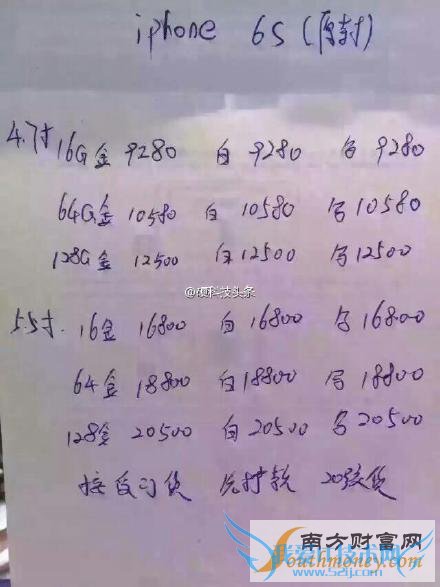 iphone 6S (原封)
4.7寸 16G金 9280 白 9280  白 9280
64G金 10580 白 10580 白 10580
128G金 12500 白 12500 白 12500
@硬科技头条
5.5寸. 16金 16800 白 16800 白 16800
64金 18800 白 18800 白 18800
128金 20500 白 20500 白 20500
接受订货 先打款 20号货
我爱IT技术网
www.52ij.com
南方财富网
outhmoney.com